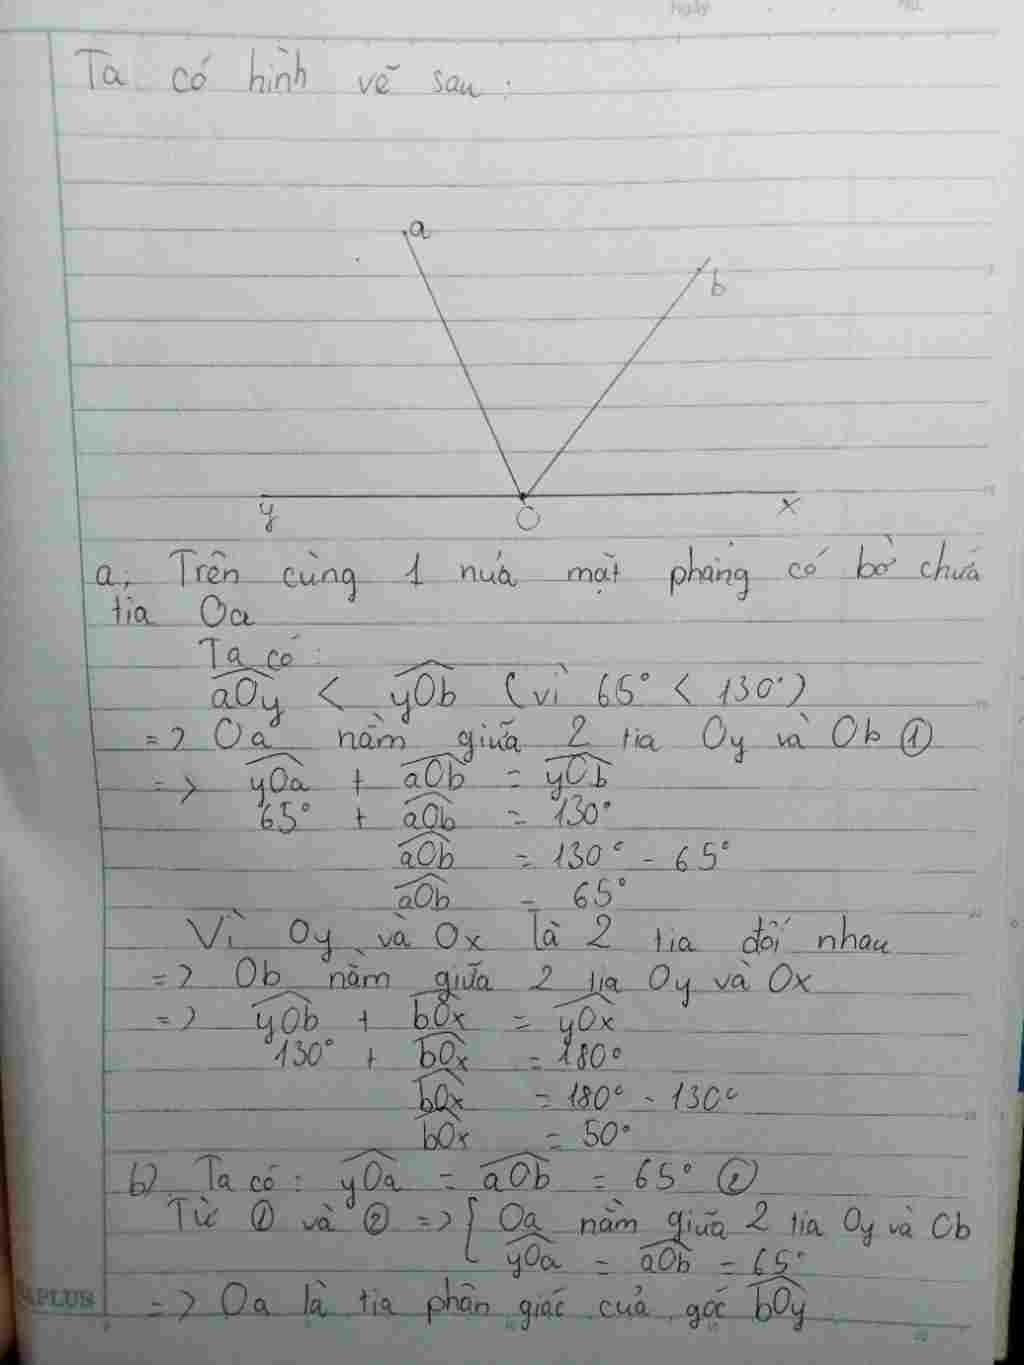 Ta có hình vẽ sau:
a
b
y
O
x
a, Trên cùng 1 nửa mặt phẳng có bờ chứa
tia Oa
Ta có:
aOy < yOb (vì 65° < 130°)
=> Oa nằm giữa 2 tia Oy và Ob ①
=> yOa + aOb = yOb
65° + aOb = 130°
aOb = 130° - 65°
aOb = 65°
Vì Oy và Ox là 2 tia đối nhau
=> Ob nằm giữa 2 tia Oy và Ox
=> yOb + bOx = yOx
130° + bOx = 180°
bOx = 180° - 130°
bOx = 50°
b) Ta có: yOa = aOb = 65° ②
Từ ① và ② => { Oa nằm giữa 2 tia Oy và Ob
yOa = aOb = 65°
=> Oa là tia phân giác của góc bOy